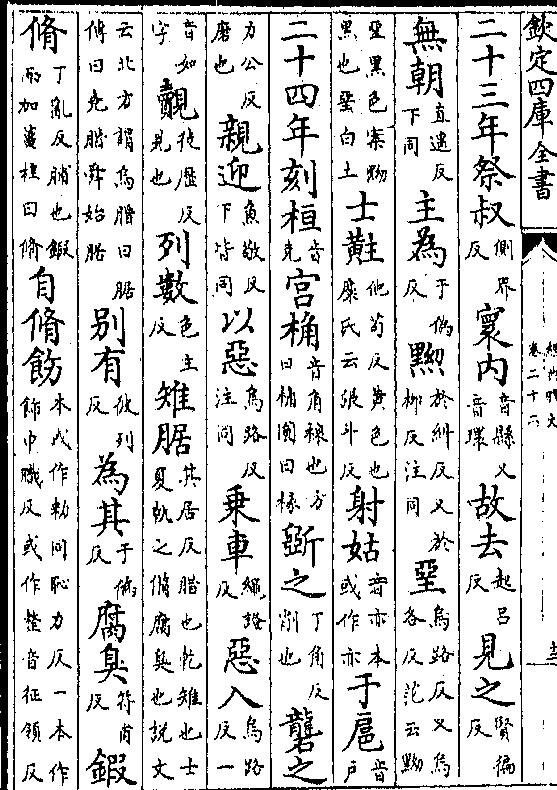 欽定四庫全書
經典釋文
卷二十二
二十三年祭叔側界反寰內音縣又音環故去起呂反見之賢徧反
無朝直遥反下同主為于偽反黝於糾反又於柳反注同堊烏路反又烏各反范云黝
堊黑色案黝黑也堊白土士黈他苟反黄色也糜氏云張斗反射姑音亦本或作亦于扈音戶
二十四年刻桓音克宮桷音角榱也方曰桷圓曰椽斵之丁角反削也礱之
力公反磨也親迎魚敬反下皆同以惡烏路反注同乗車繩證反惡入烏路反一
音如字覿徒歷反見也列數色主反雉腒其居反腊也乾雉也士夏執之備腐臭也說文
云北方謂鳥腊曰腒傳曰堯腊舜始腒别有彼列反為其于偽反腐臭符甫反鍜
脩丁亂反脯也鍜而加薑桂曰脩自脩飭本或作勅同恥力反一本作飾申職反或作整音征領反